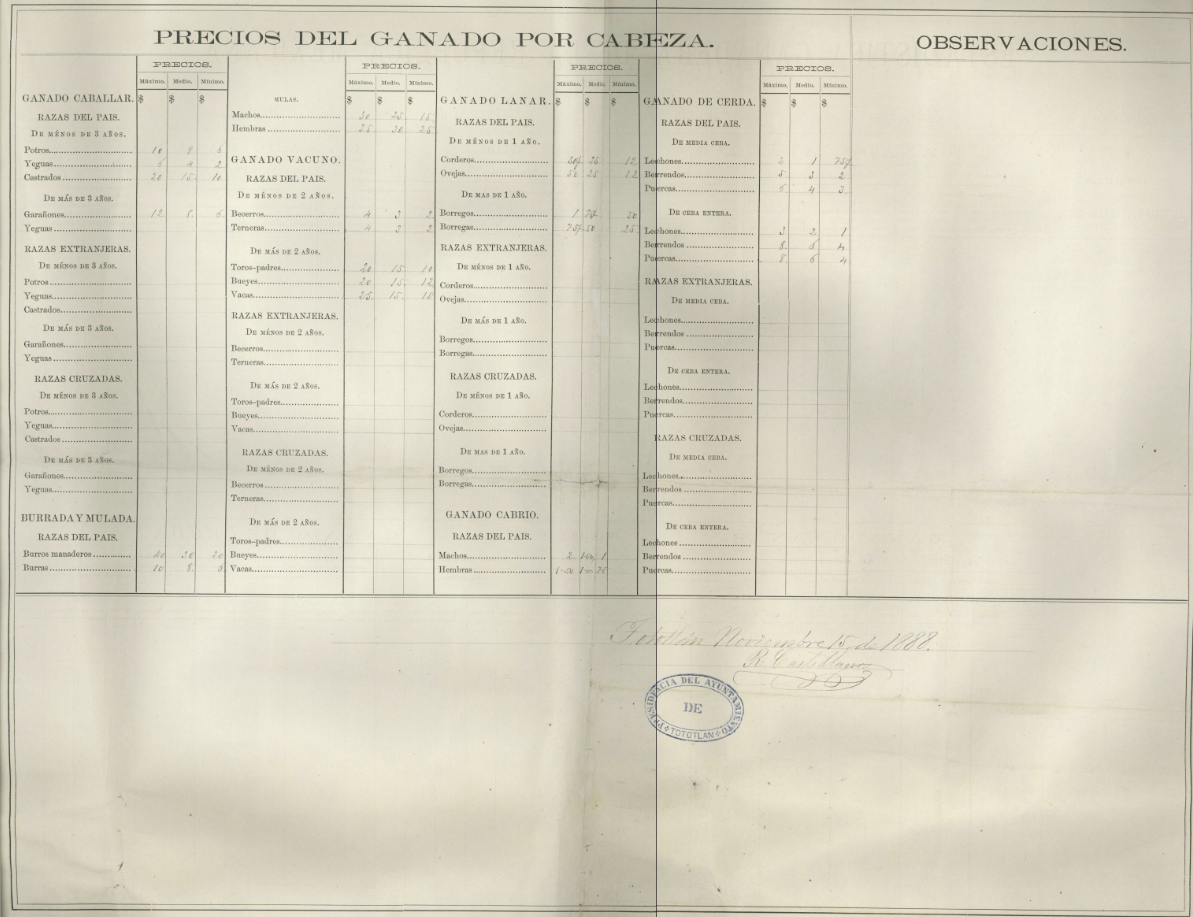 PRECIOS DEL GANADO POR CABEZA.
OBSERVACIONES.
PRECIOS.
Máximo. Medio. Mínimo.
GANADO CABALLAR. $ $ $
RAZAS DEL PAIS.
DE MÉNOS DE 3 AÑOS.
Potros 10 8 6
Yeguas 6 4 2
Castrados 20 15 10
DE MÁS DE 3 AÑOS.
Garañones 12 8 6
Yeguas
RAZAS EXTRANJERAS.
DE MÉNOS DE 3 AÑOS.
Potros
Yeguas
Castrados
DE MÁS DE 3 AÑOS.
Garañones
Yeguas
RAZAS CRUZADAS.
DE MÉNOS DE 3 AÑOS.
Potros
Yeguas
Castrados
DE MÁS DE 3 AÑOS.
Garañones
Yeguas
BURRADA Y MULADA.
RAZAS DEL PAIS.
Burros manaderos 40 30 20
Burras 10 8
PRECIOS.
Máximo. Medio. Mínimo.
MULAS. $ $ $
Machos 30 25
Hembras 30 25
GANADO VACUNO.
RAZAS DEL PAIS.
DE MÉNOS DE 2 AÑOS.
Becerros 4 3 2
Terneras 4 3 2
DE MÁS DE 2 AÑOS.
Toros-padres 20 15 10
Bueyes 20 15 12
Vacas 25 15
RAZAS EXTRANJERAS.
DE MÉNOS DE 2 AÑOS.
Becerros
Terneras
DE MÁS DE 2 AÑOS.
Toros-padres
Bueyes
Vacas
RAZAS CRUZADAS.
DE MÉNOS DE 2 AÑOS.
Becerros
Terneras
DE MÁS DE 2 AÑOS.
Toros-padres
Bueyes
Vacas
PRECIOS.
Máximo. Medio. Mínimo.
GANADO LANAR. $ $ $
RAZAS DEL PAIS.
DE MÉNOS DE 1 AÑO.
Corderos 25 12
Ovejas 50 25 12
DE MAS DE 1 AÑO.
Borregos 1
Borregas 50 25
RAZAS EXTRANJERAS.
DE MÉNOS DE 1 AÑO.
Corderos
Ovejas
DE MÁS DE 1 AÑO.
Borregos
Borregas
RAZAS CRUZADAS.
DE MÉNOS DE 1 AÑO.
Corderos
Ovejas
DE MAS DE 1 AÑO.
Borregos
Borregas
GANADO CABRIO.
RAZAS DEL PAIS.
Machos 2 1
Hembras
PRECIOS.
Máximo. Medio. Mínimo.
GANADO DE CERDA. $ $ $
RAZAS DEL PAIS.
DE MEDIA CEBA.
Lechones 2 1
Berrendos 5 3 2
Puercas 4 3
DE CEBA ENTERA.
Lechones 3 2 1
Berrendos 8 6 4
Puercas 8 6 4
RAZAS EXTRANJERAS.
DE MEDIA CEBA.
Lechones
Berrendos
Puercas
DE CEBA ENTERA.
Lechones
Berrendos
Puercas
RAZAS CRUZADAS.
DE MEDIA CEBA.
Lechones
Berrendos
Puercas
DE CEBA ENTERA.
Lechones
Berrendos
Puercas
Tototlán Noviembre 15 de 1888.
R. Castellanos
PRESIDENCIA DEL AYUNTAMIENTO
DE
TOTOTLAN